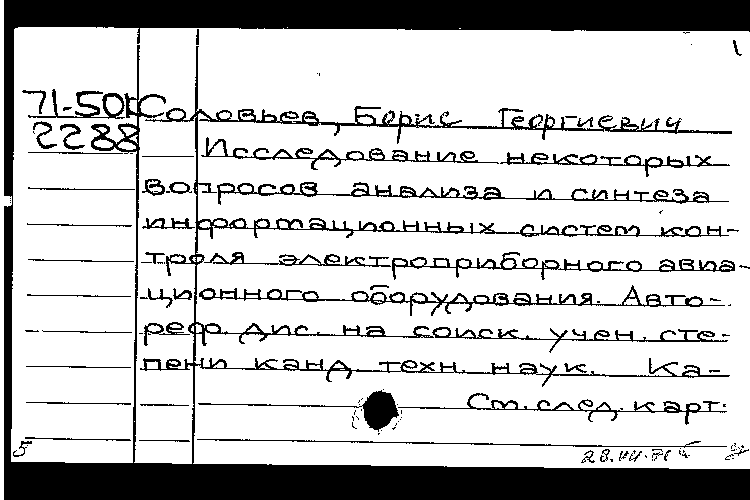 1
71-501 Соловьев, Борис Георгиевич
2288
Исследование некоторых
вопросов анализа и синтеза
информационных систем кон-
троля электроприборного авиа-
ционного оборудования. Авто-
реф. дис. на соиск. учен. сте-
пени канд. техн. наук. Ка-
См. след. карт.
5